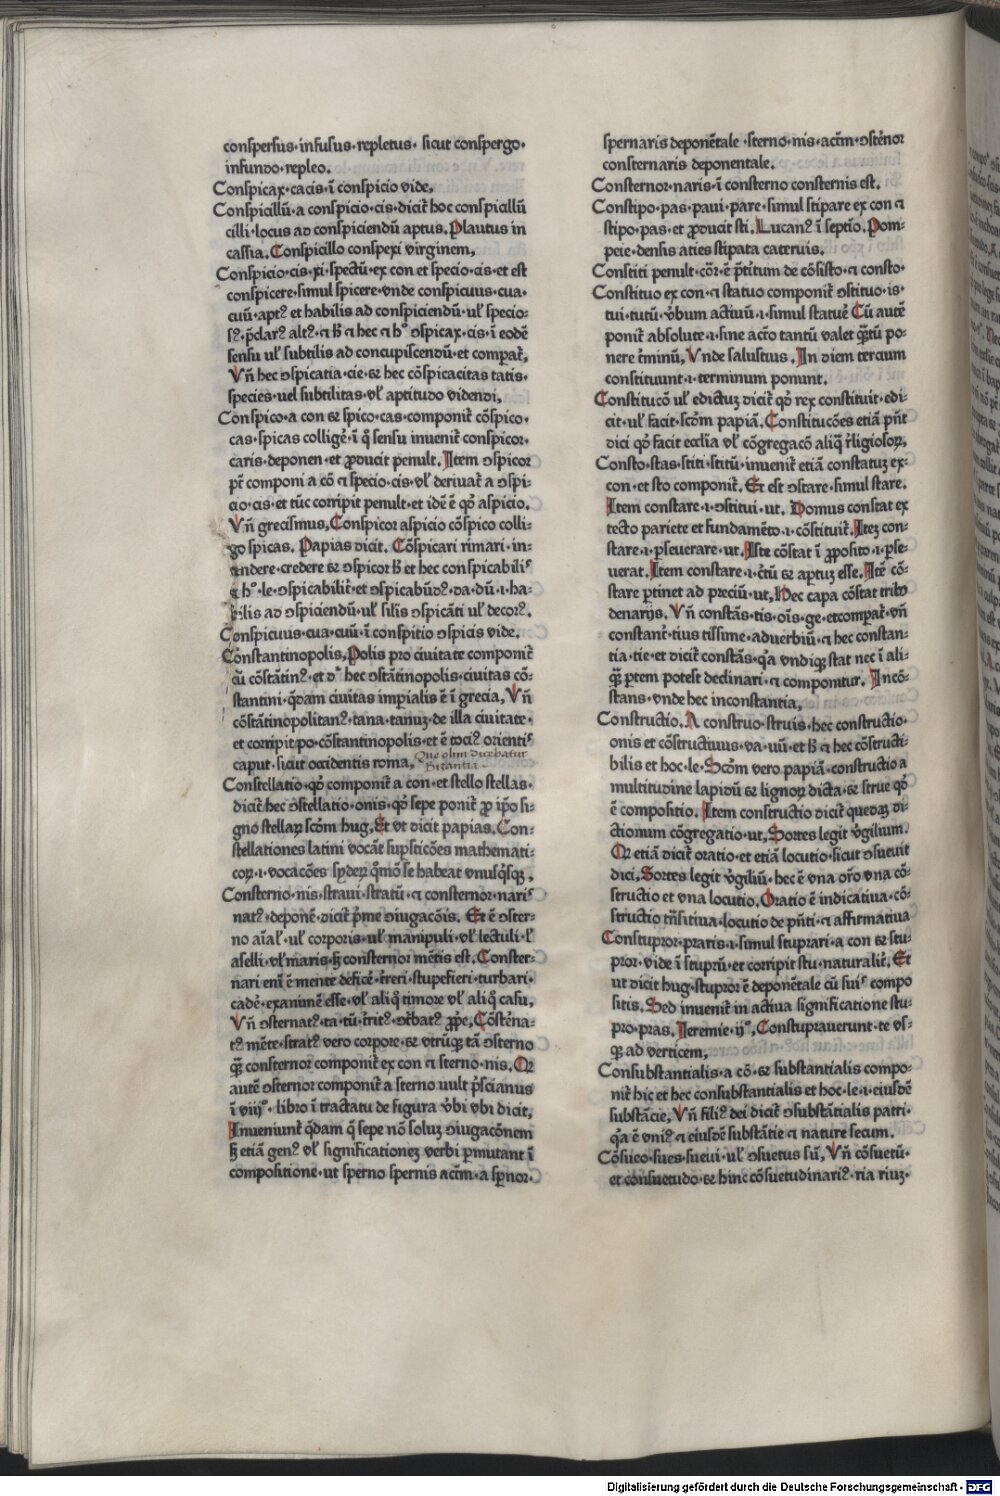 conspersus·infusus·repletus· sicut conspergo·
infundo·repleo.
Conspicax·cacis·ī conspicio vide,
Conspicillū·a conspicio·cis·dicit̄ hoc conspicillū
cilli·locus ad conspiciendū aptus. Plautus in
cassia. Conspicillo conspexi virginem,
Conspicio·cis·xi·spectū·ex con et specio·cis·et est
conspicere·simul spicere·vnde conspicuus·cua·
cuū·aptꝰ et habilis ad conspiciendū·ul̕ specio-
sꝰ·p̄clarꝰ altꝰ·⁊ h̄ ⁊ hec ⁊ hº ↄspicax·cis·ī eodē
sensu ul̕ subtilis ad concupiscendū·et compat̄,
Vn̄ hec ↄspicatia·cie·et hec cōspicacitas tatis·
species·uel subtilitas·vl̕ aptitudo videndi,
Conspico·a con et spico·cas·componit̄ cōspico·
cas·spicas collige᷑·ī q̄ sensu inuenit̄ conspicor·
caris·deponen·et ꝓducit penult. Item ↄspicor
pt̄ componi a cō ⁊ specio·cis·vl̕ deriuat̄ a ↄspi-
cio·cis·et tūc corripit penult·et idē ē qď aspicio.
Vn̄ grecismus, Conspicor aspicio cōspico colli-
go spicas. Papias dicit. Cōspicari rimari·in-
tendere·credere et ↄspicor h̄ et hec conspicabilis
⁊ hº·le·ↄspicabilit̄·et ↄspicabūdꝰ·da·dū·ı·ha-
bilis ad ↄspiciendū·ul̕ silis ↄspicāti ul̕ decorꝰ.
Conspicuus·cua·cuū·ī conspitio ↄspicis vide.
Constantinopolis, Polis pro ciuitate componit̄
cū cōstātinꝰ·et dr̄ hec ↄstātinopolis·ciuitas cō-
stantini·q̄dam ciuitas imꝑialis ē ī grecia, Vn̄
cōstātinopolitanꝰ·tana·tanuʒ·de illa ciuitate·
et corripit po·cōstantinopolis·et ē tociꝰ orientis
caput·sicut occidentis roma, Que olim dicebatur
Bitantia·
Constellatio·qď componit̄ a con·et stello stellas·
dicit̄ hec ↄstellatio·onis·qď sepe ponit̄ ꝓ ip̄o si-
gno stellaꝝ scōm hug, Et vt dicit papias. Con-
stellationes latini vocāt supsticōes mathemati-
coꝝ·ı·vocacōes sydeꝝ q̄mō se habeat vnusq̄sqꝫ,
Consterno·nis·straui·stratū·⁊ consternor·naris
natꝰ·deponē·dicit̄ p̄me ↄiugacōis. Et ē ↄster-
no aīal̕·ul̕ corporis·ul̕ manipuli·vl̕ lectuli·l̕
aselli·vl̕ maris·sꝫ consternor mētis est. Conster-
nari enī ē mente deficē·t̄reri·stupefieri·turbari·
cadē·exanimē esse·vl̕ aliq̄ timore vl̕ aliq̄ casu,
Vn̄ ↄsternatꝰ·ta·tū·t̄ritꝰ·ↄt̄batꝰ ꝓpe, Cōstēna-
tꝰ mēte·stratꝰ vero corpore·et vtrūqꝫ tā ↄsterno
qꝫ consternor componit̄ ex con ⁊ sterno·nis. Qď
autē ↄsternor componit̄ a sterno uult p̄scianus
ī viijº·libro ī tractatu de figura v̄bi vbi dicit,
Inueniunt̄ q̄dam q̄ sepe nō soluʒ ↄiugacōnem
sꝫ etiā genꝰ vl̕ significationeʒ verbi ꝑmutant ī
compositione·ut sperno spernis actm̄·a spnor·
spernaris deponētale·sterno·nis·actm̄·ↄstēnor
consternaris deponentale.
Consternor·naris·ī consterno consternis est.
Constipo·pas·paui·pare·simul stipare ex con ⁊
stipo·pas·et ꝓducit sti. Lucanꝰ ī septīo. Pom-
peie·densis aties stipata cateruis.
Constiti penult·cōr·ē p̄titum de cōsisto·⁊ consto·
Constituo ex con·⁊ statuo componit̄ ↄstituo·is·
tui·tutū·v̄bum actiuū·ı·simul statue᷑ Cū autē
ponit̄ absolute·ı·sine actō tantū valet q̄tū po-
nere t̄minū, Vnde salustius. In diem tercium
constituunt·ı·terminum ponunt.
Constitucō ul̕ edictuʒ dicit̄ qď rex constituit·edi-
cit·ul̕ facit·scōm papiā. Constitucōes etiā pn̄t
dici qď facit eccl̄ia vl̕ cōgregacō aliq̄ r̄ligiosoꝝ,
Consto·stas·stiti·stitū·inuenit̄ etiā constatuʒ ex-
con·et sto componit̄. Et est ↄstare·simul stare.
Item constare·ı·ↄstitui·ut. Domus constat ex
tecto pariete et fundamēto·ı·cōstituit̄. Iteʒ con-
stare·ı·ꝑseuerare·ut. Iste cōstat ī ꝓposito·ı·ꝑse-
uerat. Item constare·ı·c̄tū et aꝑtuʒ esse. Itē cō-
stare ꝑtinet ad preciū·ut, Hec capa cōstat tribꝰ
denarijs. Vn̄ constās·tis·oīs·ge·et compat̄·vn̄
constant̄·tius tissime·aduerbiū·⁊ hec constan-
tia·tie·et dicit̄ constās·q̄a vndiqꝫ stat nec ī ali-
qꝫ ꝑtem potest declinari·⁊ componitur. Incō-
stans·vnde hec inconstantia,
Constructio. A construo·struis·hec constructio·
onis et cōstructiuus·ua·uū·et h̄ ⁊ hec cōstructi-
bilis et hoc·le·Scōm vero papiā·constructio a
multitudine lapidū et lignoꝝ dicta·et strue qď
ē compositio. Item constructio dicit̄ quedaʒ di-
ctionum cōgregatio·ut, Sortes legit v̄gilium.
Qď etiā dicit̄ oratio·et etiā locutio·sicut ↄsueuit
dici, Sortes legit v̄giliū·hec ē vna or̄o vna cō-
structio et vna locutio. Oratio ē indicatiua·cō-
structio tn̄sitiua·locutio de pn̄ti·⁊ affirmatiua
Constupror·praris·ı·simul stuprari·a con et stu-
pror·vide ī stuprū·et corripit stu·naturalit̄. Et
ut dicit hug·stupror ē deponētale cū suis compo
sitis. Sed inuenit̄ in actiua significatione stu-
pro·pras. Jeremie·ijº, Constuprauerunt·te vs-
qꝫ ad verticem,
Consubstantialis·a cō·et substantialis compo-
nit̄ hic et hec consubstantialis et hoc·le·ı·eiusdē
substācie, Vn̄ filiꝰ dei dicit̄ ↄsubstātialis patri·
q̄a ē vniꝰ ⁊ eiusdē substātie ⁊ nature secum.
Cōsueo·sues·sueui·ul̕ ↄsuetus sū, Vn̄ cōsuetū·
et consuetudo·et hinc cōsuetudinariꝰ·ria riuʒ·
Digitalisierung gefördert durch die Deutsche Forschungsgemeinschaft - DFG